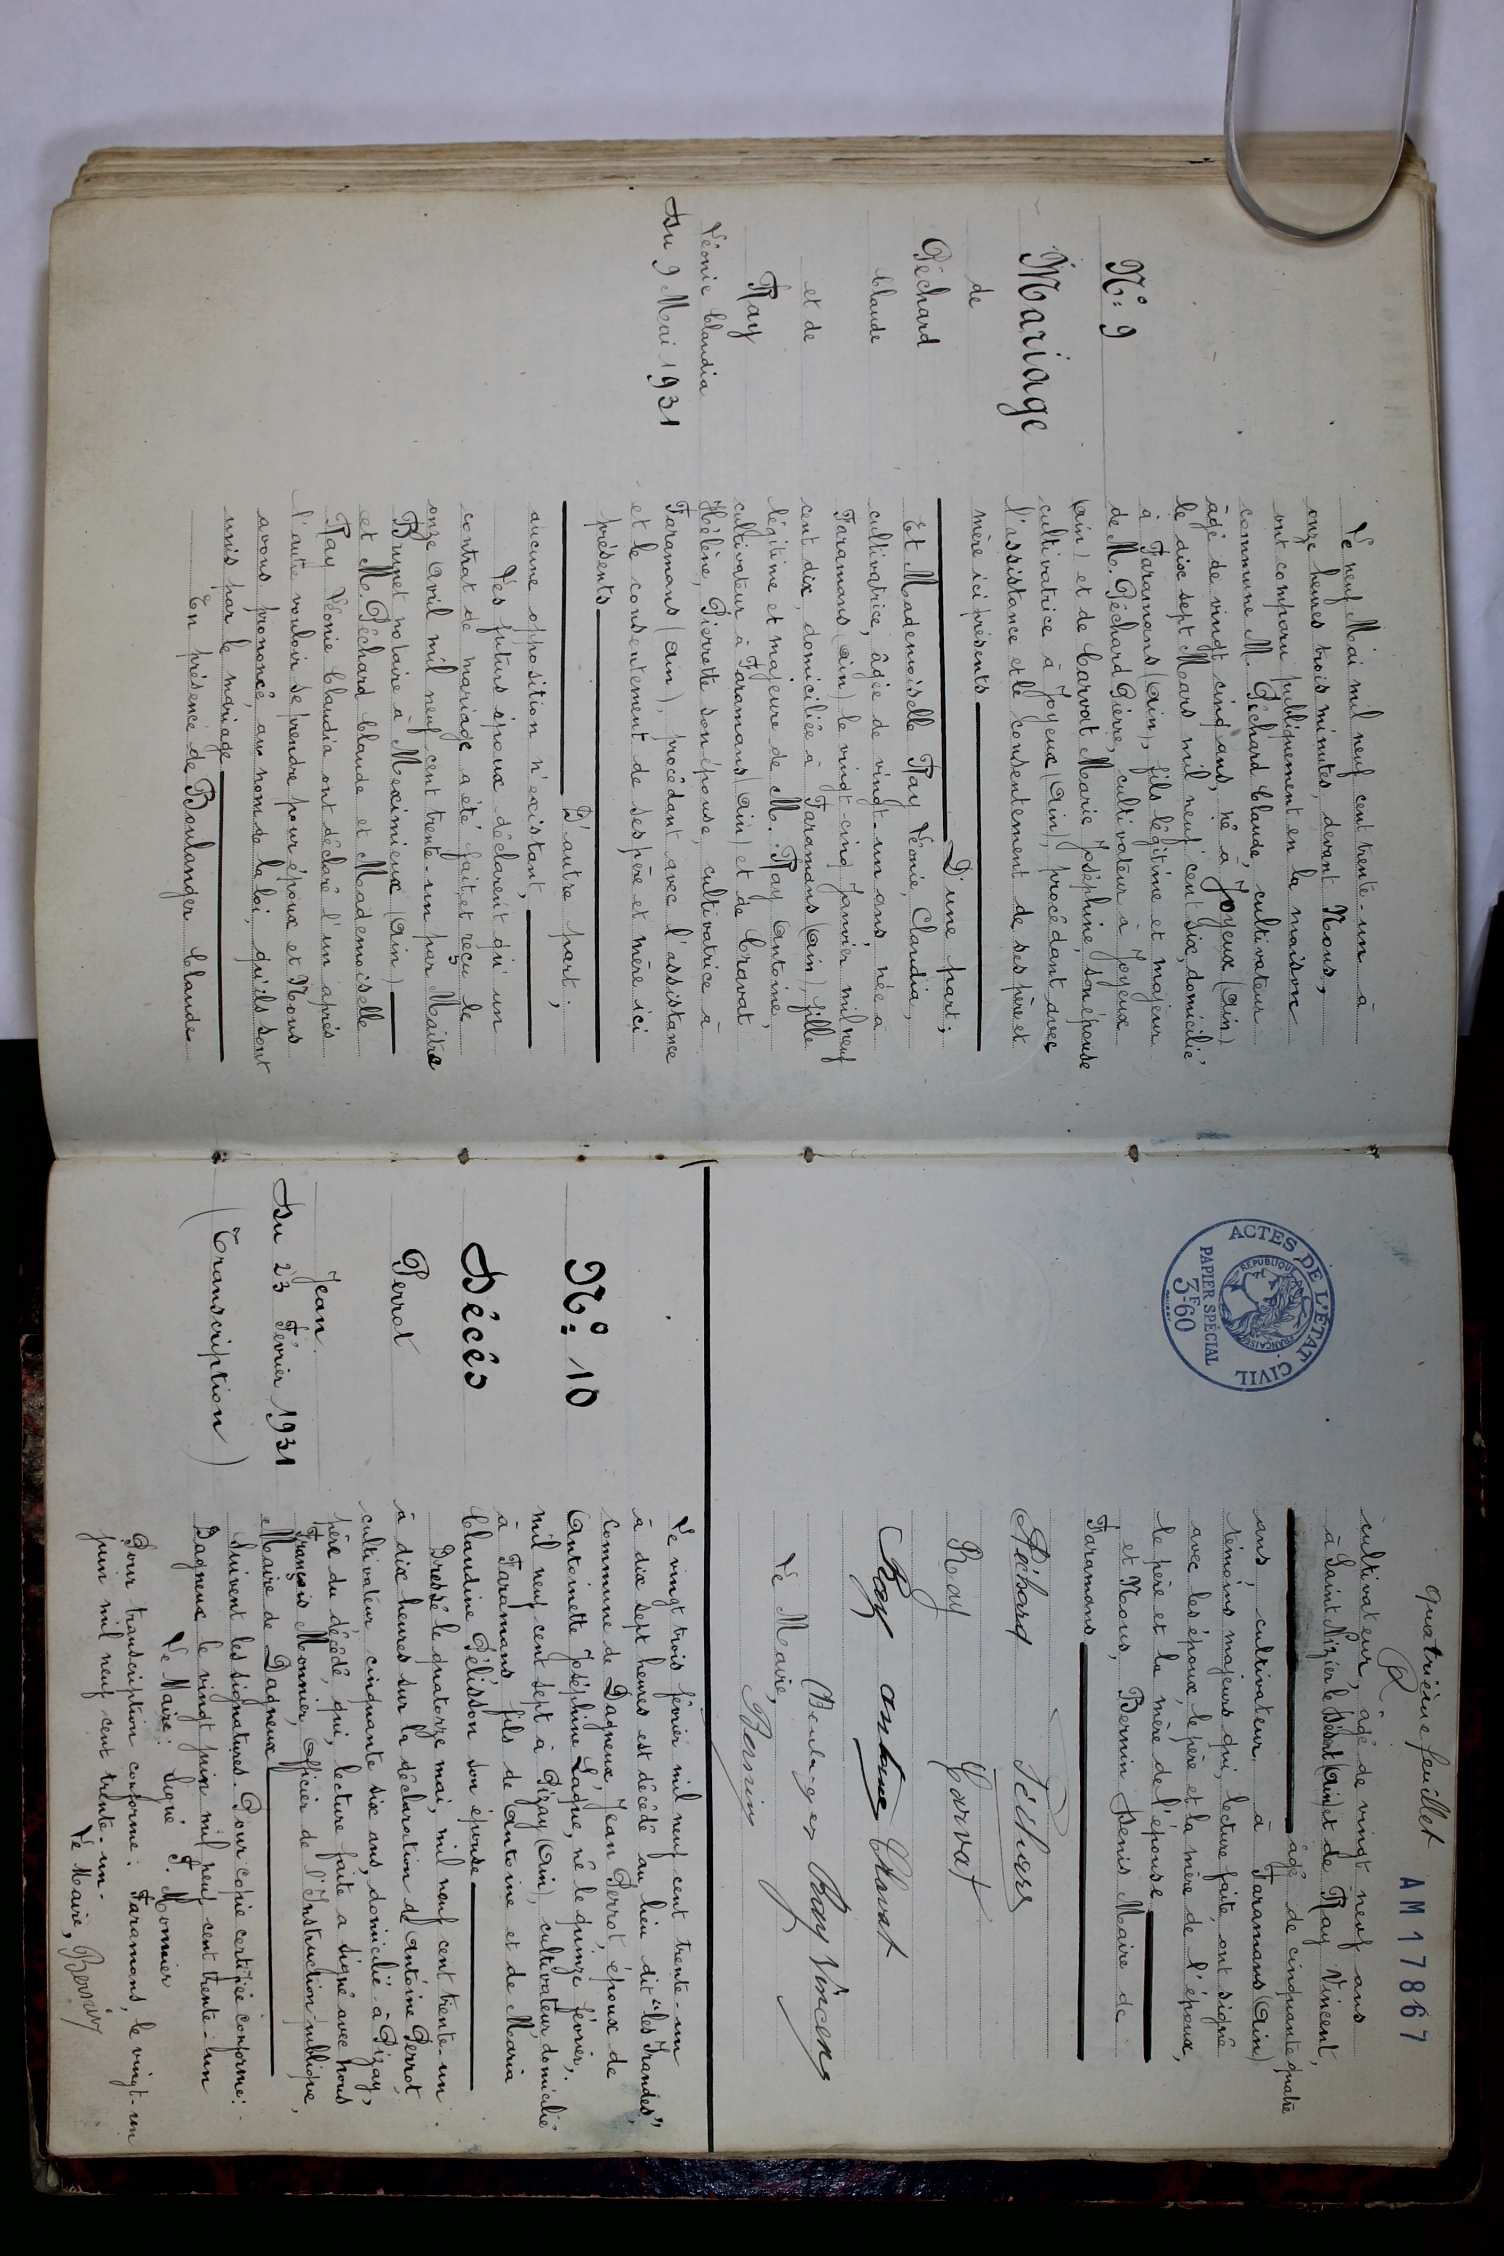 N° 9
Mariage
de
Péchard
Claude
et de
Ray
Léonie Claudia
Du 9 Mai 1931
Le neuf Mai mil neuf cent trente-un à
onze heures trois minutes, devant Nous,
ont comparu publiquement en la maison
commune M. Péchard Claude, cultivateur
âgé de vingt cinq ans, né à Joyeux (Ain)
le dix sept Mars mil neuf cent six, domicilié
à Faramans (Ain), fils légitime et majeur
de M. Péchard Pierre, cultivateur à Joyeux
(Ain) et de Carvat Marie Joséphine, son épouse
cultivatrice à Joyeux (Ain), procédant avec
l'assistance et le consentement de ses père et
mère ici présents
D'une part;
Et Mademoiselle Ray Léonie, Claudia,
cultivatrice, âgée de vingt-un ans, née à
Faramans (Ain) le vingt-cinq Janvier mil neuf
cent dix, domiciliée à Faramans (Ain), fille
légitime et majeure de M. Ray Antoine,
cultivateur à Faramans (Ain) et de Cravat
Hélène, Pierrette son épouse, cultivatrice à
Faramans (Ain), procédant avec l'assistance
et le consentement de ses père et mère ici
présents
D'autre part;
aucune opposition n'existant,
Les futurs époux déclarent qu'un
contrat de mariage a été fait et reçu le
onze Avril mil neuf cent trente-un par Maître
Brunet notaire à Meximieux (Ain)
et M. Péchard Claude et Mademoiselle
Ray Léonie Claudia ont déclaré l'un après
l'autre vouloir se prendre pour époux et Nous
avons prononcé, au nom de la loi, qu'ils sont
unis par le mariage
En présence de Boulanger Claude
quatrième feuillet
AM17867
cultivateur, âgé de vingt neuf ans
à Saint Nizier le Désert (Ain) et de Ray Vincent,
âgé de cinquante quatre
ans, cultivateur à Faramans (Ain)
témoins majeurs qui, lecture faite, ont signé
avec les époux, le père et la mère de l'époux,
le père et la mère de l'épouse
et Nous, Bernin Denis Maire de
Faramans
ACTES DE L'ÉTAT CIVIL
RÉPUBLIQUE FRANÇAISE
PAPIER SPÉCIAL
3F60
Péchard Péchard
Ray Carvat
Ray antoine Cravat
Boulanger Ray Vincent
Le Maire,
Bernin
N° 10
Décès
Perrot
Jean
Du 23 Février 1931
(Transcription)
Le vingt trois février mil neuf cent trente-un
à dix sept heures est décédé au lieu dit "les Grandes",
commune de Dagneux Jean Perrot, époux de
Antoinette Joséphine né le quinze février,
mil neuf cent sept à Pizay (Ain), cultivateur, domicilié
à Faramans, fils de Antoine et de Maria
Claudine Pélisson son épouse
Dressé le quatorze mai, mil neuf cent trente-un
à dix heures sur la déclaration de Antoine Perrot,
cultivateur cinquante six ans, domicilié à Pizay,
père du décédé, qui, lecture faite a signé avec nous
François Monnier, Officier de l'Instruction publique,
Maire de Dagneux
Suivent les signatures. Pour copie certifiée conforme:
Dagneux le vingt juin mil neuf cent trente-un
Le Maire: Signé F. Monnier
Pour transcription conforme: Faramans, le vingt-un
juin mil neuf cent trente-un.
Le Maire, Bernin